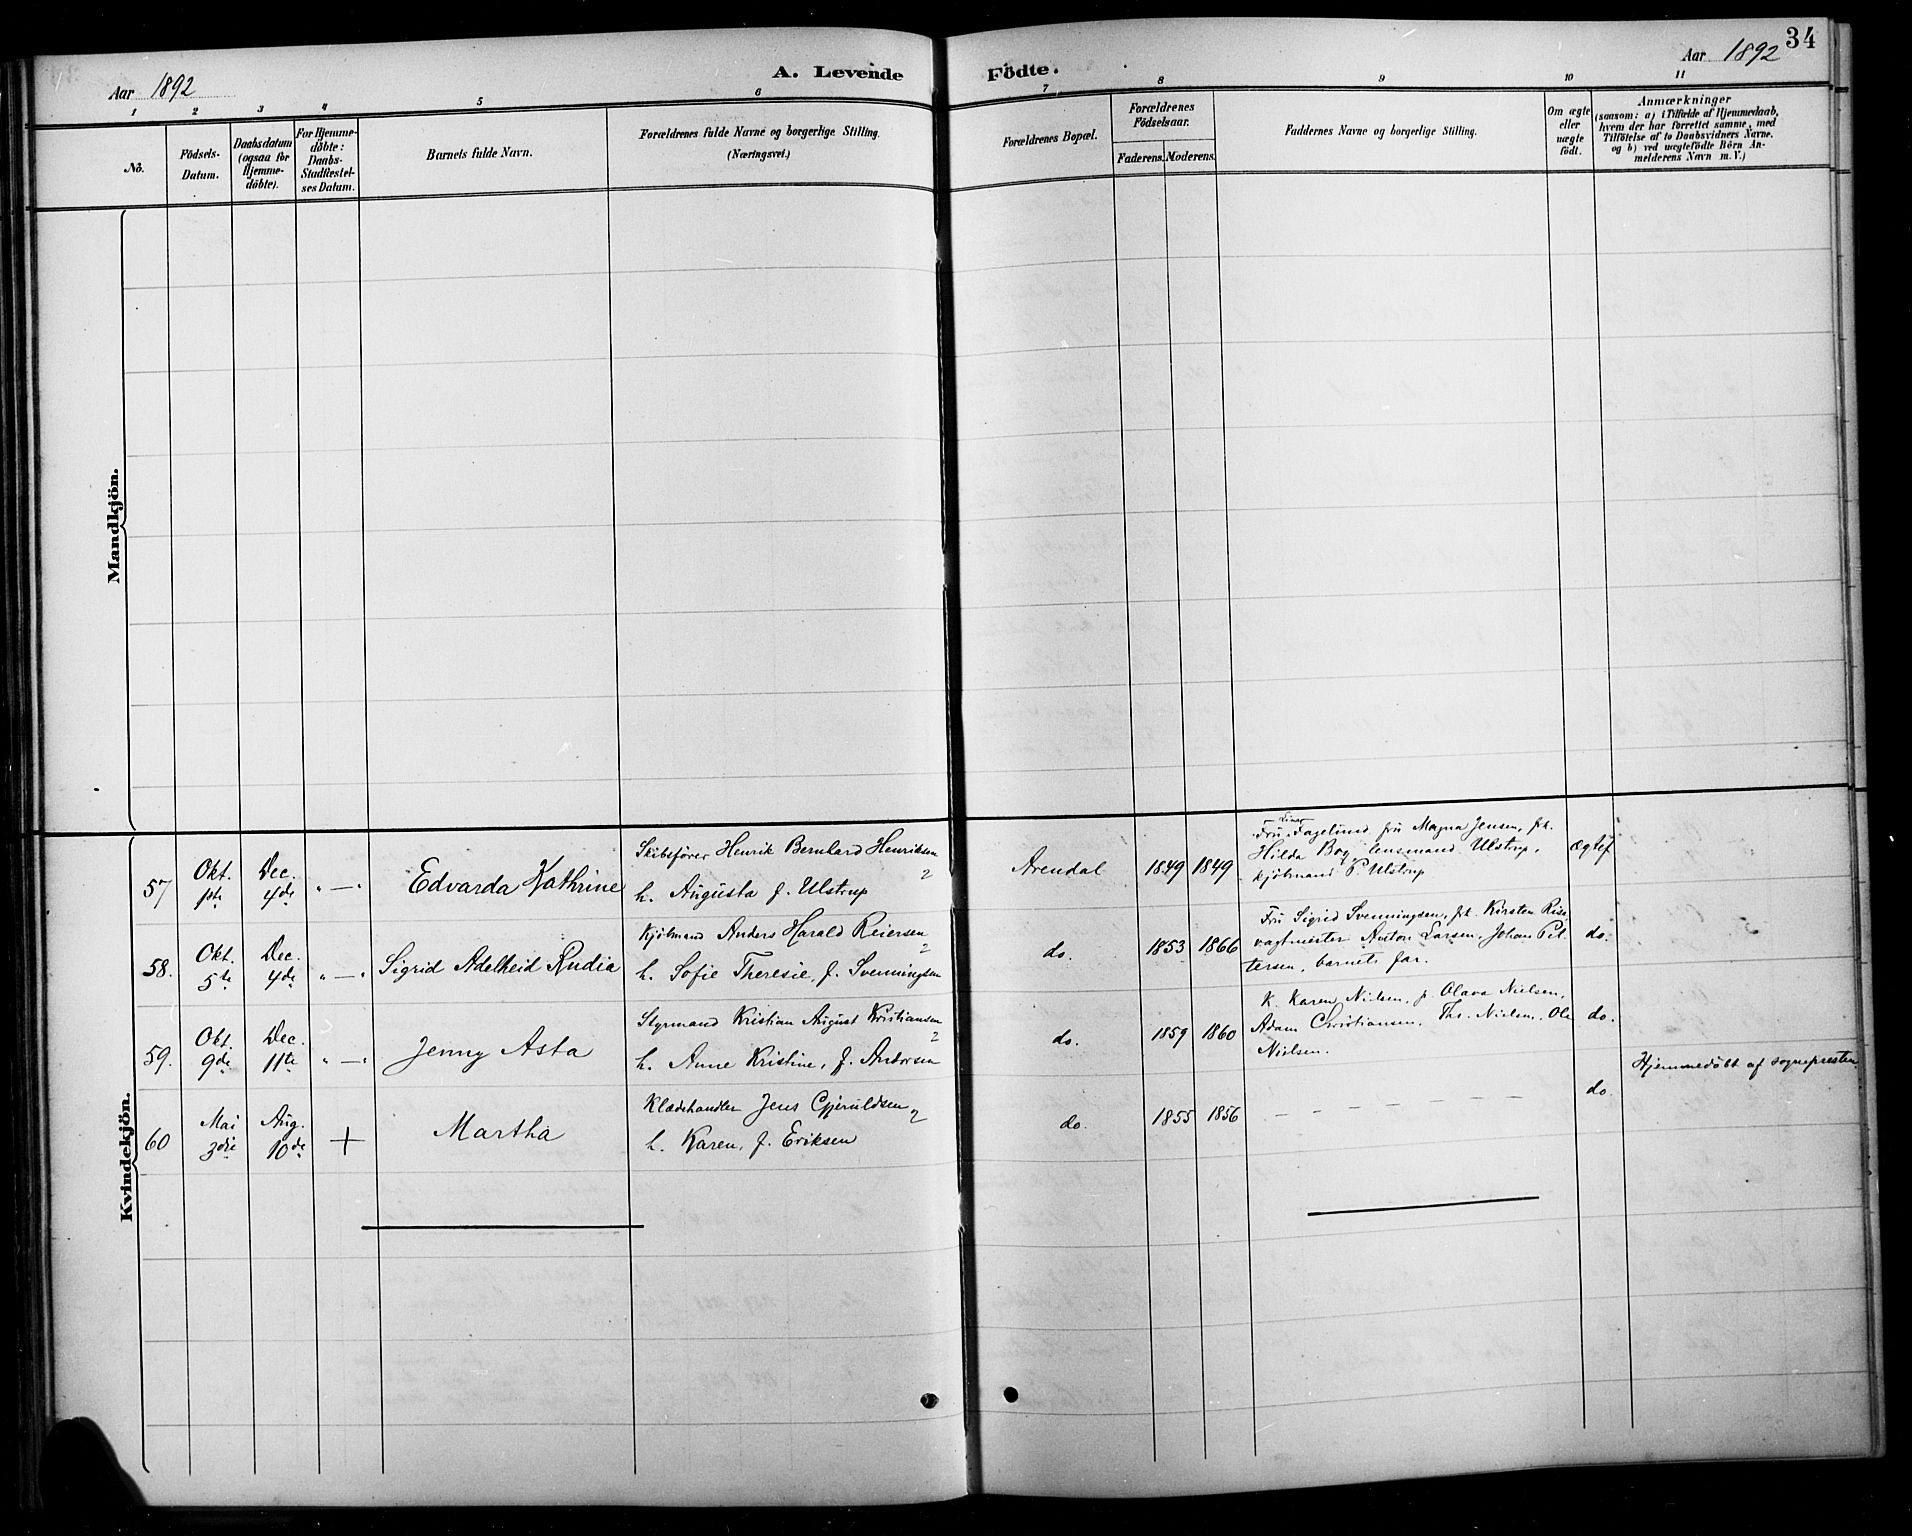 34
Aar 1892
A. Levende Födte.
Aar 1892
1 2 3 4 5 6 7 8 9 10 11
No.
Födsels-
Datum.
Daabsdatum
(ogsaa for
Hjemme-
döbte).
For Hjemme-
döbte:
Daabs-
Stadfæstel-
ses Datum.
Barnets fulde Navn.
Forældrenes fulde Navne og borgerlige Stilling.
(Næringsvei.)
Forældrenes Bopæl.
Forældrenes
Födselsaar.
Faderens. Moderens.
Faddernes Navne og borgerlige Stilling.
Om ægte
eller
uægte
födt.
Anmærkninger
(saasom: a) i Tilfælde af Hjemmedaab,
hvem der har forrettet samme, med
Tilföielse af to Daabsvidners Navne.
og b) ved uægtefödte Börn An-
melderens Navn m. V.)
Mandkjön.
Kvindekjön.
57
Okt.
1ste
Dec.
4de
" — "
Edvarda Kathrine
Skibsförer Henrik Bernhard Henriksen
h. Augusta f. Ulstrup
Arendal
1849 1849
Fru Fagelund, fru Magna Jensen, frk.
Hilda Boy, lensmand Ulstrup,
kjöbmand P. Ulstrup
Ægtef.
58.
Okt.
5te
Dec.
4de
" — "
Sigrid Adelheid Rudia
Kjöbmand Anders Harald Reiersen
h. Sofie Theresie, f. Svenningsen
do.
1853 1866
Fru Sigrid Svenningsen, frk. Kirsten Riis,
vagtmester Anton Larsen, Johan Pet-
tersen, barnets far.
do.
59.
Okt.
9de
Dec.
11te
" — "
Jenny Asta
Styrmand Kristian August Kristiansen
h. Anne Kristine, f. Andersen
do.
1859 1860
K. Karen Nielsen, p. Olava Nielsen,
Adam Christiansen, Ths. Nielsen, Ole
Nielsen.
do.
60
Mai
3die
Aug.
10de
+
Martha
Klædehandler Jens Gjeruldsen
h. Karen, f. Eriksen
do.
1855 1856
— — — — — — —
do.
Hjemmedöbt af sognepresten.